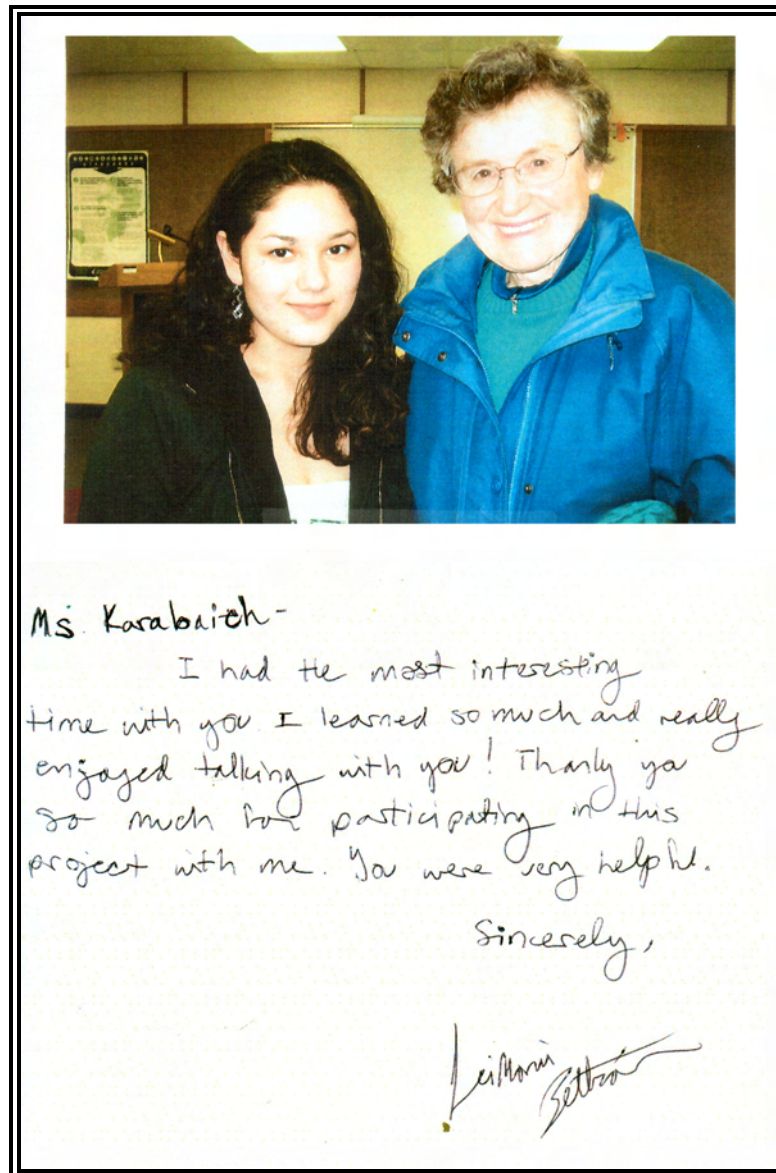 Ms. Karabaich -
I had the most interesting
time with you I learned so much and really
enjoyed talking with you! Thank you
so much for participating in this
project with me. You were very helpful.
Sincerely,